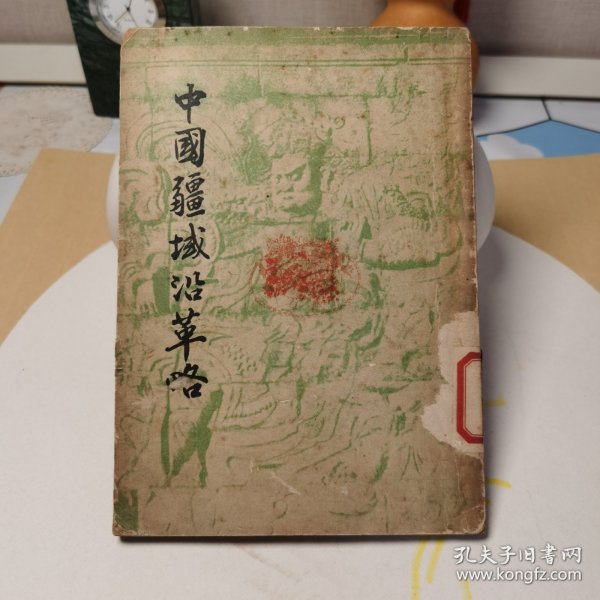 中國疆域沿革略
孔夫子旧书网
www.kongfz.com